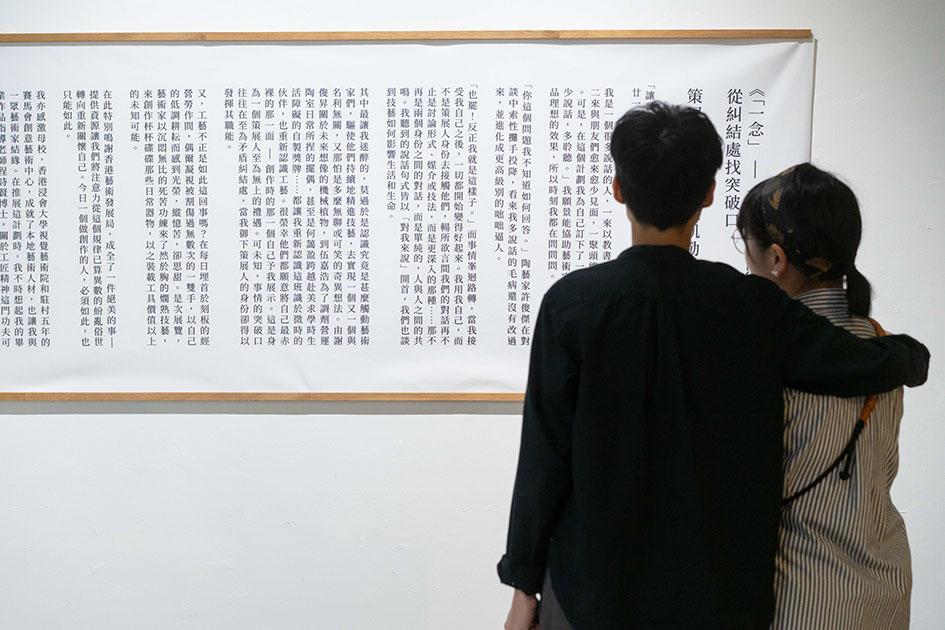 《「一念」——
從糾結處找突破口
策
動
「讓
廿
我是一個很多說話的人，一來以教書
二來與朋友們愈來愈少見面，一聚頭
。可是，在這個計劃我為自己訂下了一
少說話，多聆聽。」我願景能協助藝術
品理想的效果，所以時刻我都在問問
「你這個問題我不知道如何回答。」陶藝家許俊傑在對
談中索性攤手投降，看來我多說話的毛病還沒有改過
來，並進化成更高級別的咄咄逼人。
「也罷！反正我就是這樣子。」而事情峯迴路轉，當我接
受我自己之後，一切都開始變得好起來。我用我自己，而
不是策展人身份去接觸他們，暢所欲言間我們的對話再不
止是討論形式、媒介或技法，而是更深入的那種……那不
再是兩個身份之間的對話，而是單純的，人與人之間的共
鳴。我聽到的說話句式皆以「對我來說」開首，我們也談
到技藝如何影響生活和生命。
其中最讓我迷醉的，莫過於是認識究竟是甚麼觸動藝術
家們，驅使他們持續地精進技藝，去實現一個又一個與
名利無關，又那怕是多麼無聊或可笑的奇異想法。由謝
俊昇關於未來想像的機械植物，到伍嘉浩為了劑營運
陶室日常所捏的擺偶，甚至是何藹盈跨越赴美求學時生
活障礙的自製獎牌……都讓我重新認識這班識於微時的
伙伴，也重新認識工藝。很榮幸他們都願意將自己最赤
裸的那一面——創作時的那一個自己予我展示。這是身
為一個策展人至為無上的禮遇。可未知，事情的突破口
往往在至為矛盾糾結處，當我卸下策展人的身份卻得以
發揮其職能。
又，工藝不正是如此這回事嗎？在每日埋首於刻板的經
營勞作間，偶爾凝視被割傷過無數次的一雙手，以自己
的低調耕耘而感到光榮，縱憶苦，卻思甜。是次展覽，
藝術家以沉悶無比的死苦功練來了然於胸的爛熟技藝，
來創作杯杯碟碟那些日常器物，以之裝載工具價值以上
的未知可能。
在此特別鳴謝香港藝術發展局，成全了一件絕美的事——
提供資源讓我們將注意力從這個規律已算異數的紛亂俗世
轉向重新關懷自己。今日一個做創作的人，必須如此，也
只能如此。
我亦感激母校，香港浸會大學視覺藝術院和駐村五年的
賽馬會創意藝術中心，成就了本地藝術人材，也讓我與
一眾藝術家結緣。在推展這計劃時，我不時想起我的畢
業作品指導老師程詩賢博士，關於工匠精神這門功夫可